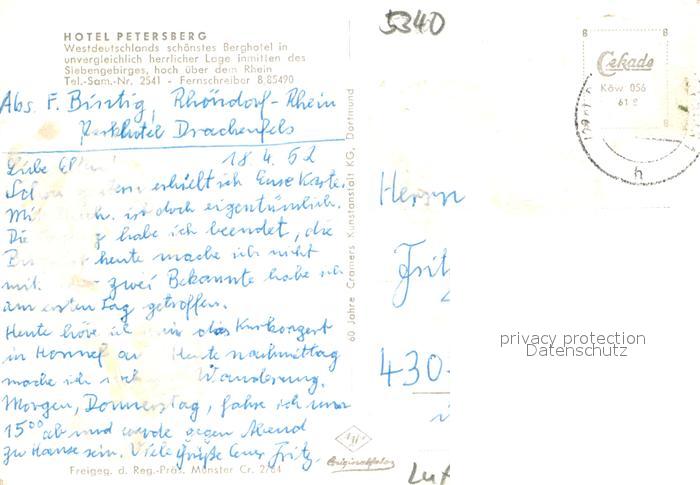 HOTEL PETERSBERG
Westdeutschlands schönstes Berghotel in
unvergleichlich herrlicher Lage inmitten des
Siebengebirges, hoch über dem Rhein
Tel.-Sam.-Nr. 2541 - Fernschreiber 8,85490
Abs. F. Rhöndorf-Rhein
Parkhotel Drachenfels
18.4.62
Liebe
erhielt ich Eure Karte.
ist doch eigentümlich.
Die habe ich beendet, die
heute mache ich nicht
mit. zwei Bekannte habe ich
am ersten Tag getroffen.
Heute höre ich das Kurkonzert
in Honnef an Heute nachmittag
mache ich Wanderung.
Morgen, Donnerstag, fahre ich um
15°° ab und werde gegen Abend
zu Hause sein. Viele Grüße Euer Fritz.
Freigeg. d. Reg.-Präs. Münster Cr. 2/64
60 Jahre Cramers Kunstanstalt KG, Dortmund
Originalfoto
5340
Cekade
Köw 056
61 S
8
8
8
8
h
Herrn
Fritz
430
privacy protection
Datenschutz